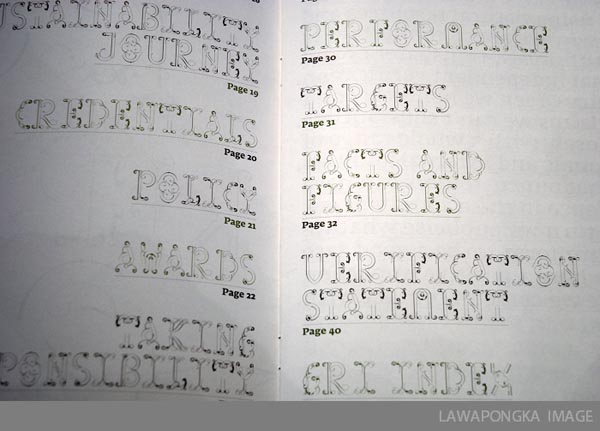 USTAINABILITY
JOURNEY
Page 19
CREDENTIALS
Page 20
POLICY
Page 21
AWARDS
Page 22
TAKING
PONSIBILITY
PERFORMANCE
Page 30
TARGETS
Page 31
FACTS AND
FIGURES
Page 32
VERIFICATION
STATEMENT
Page 40
GRI INDEX
LAWAPONGKA IMAGE